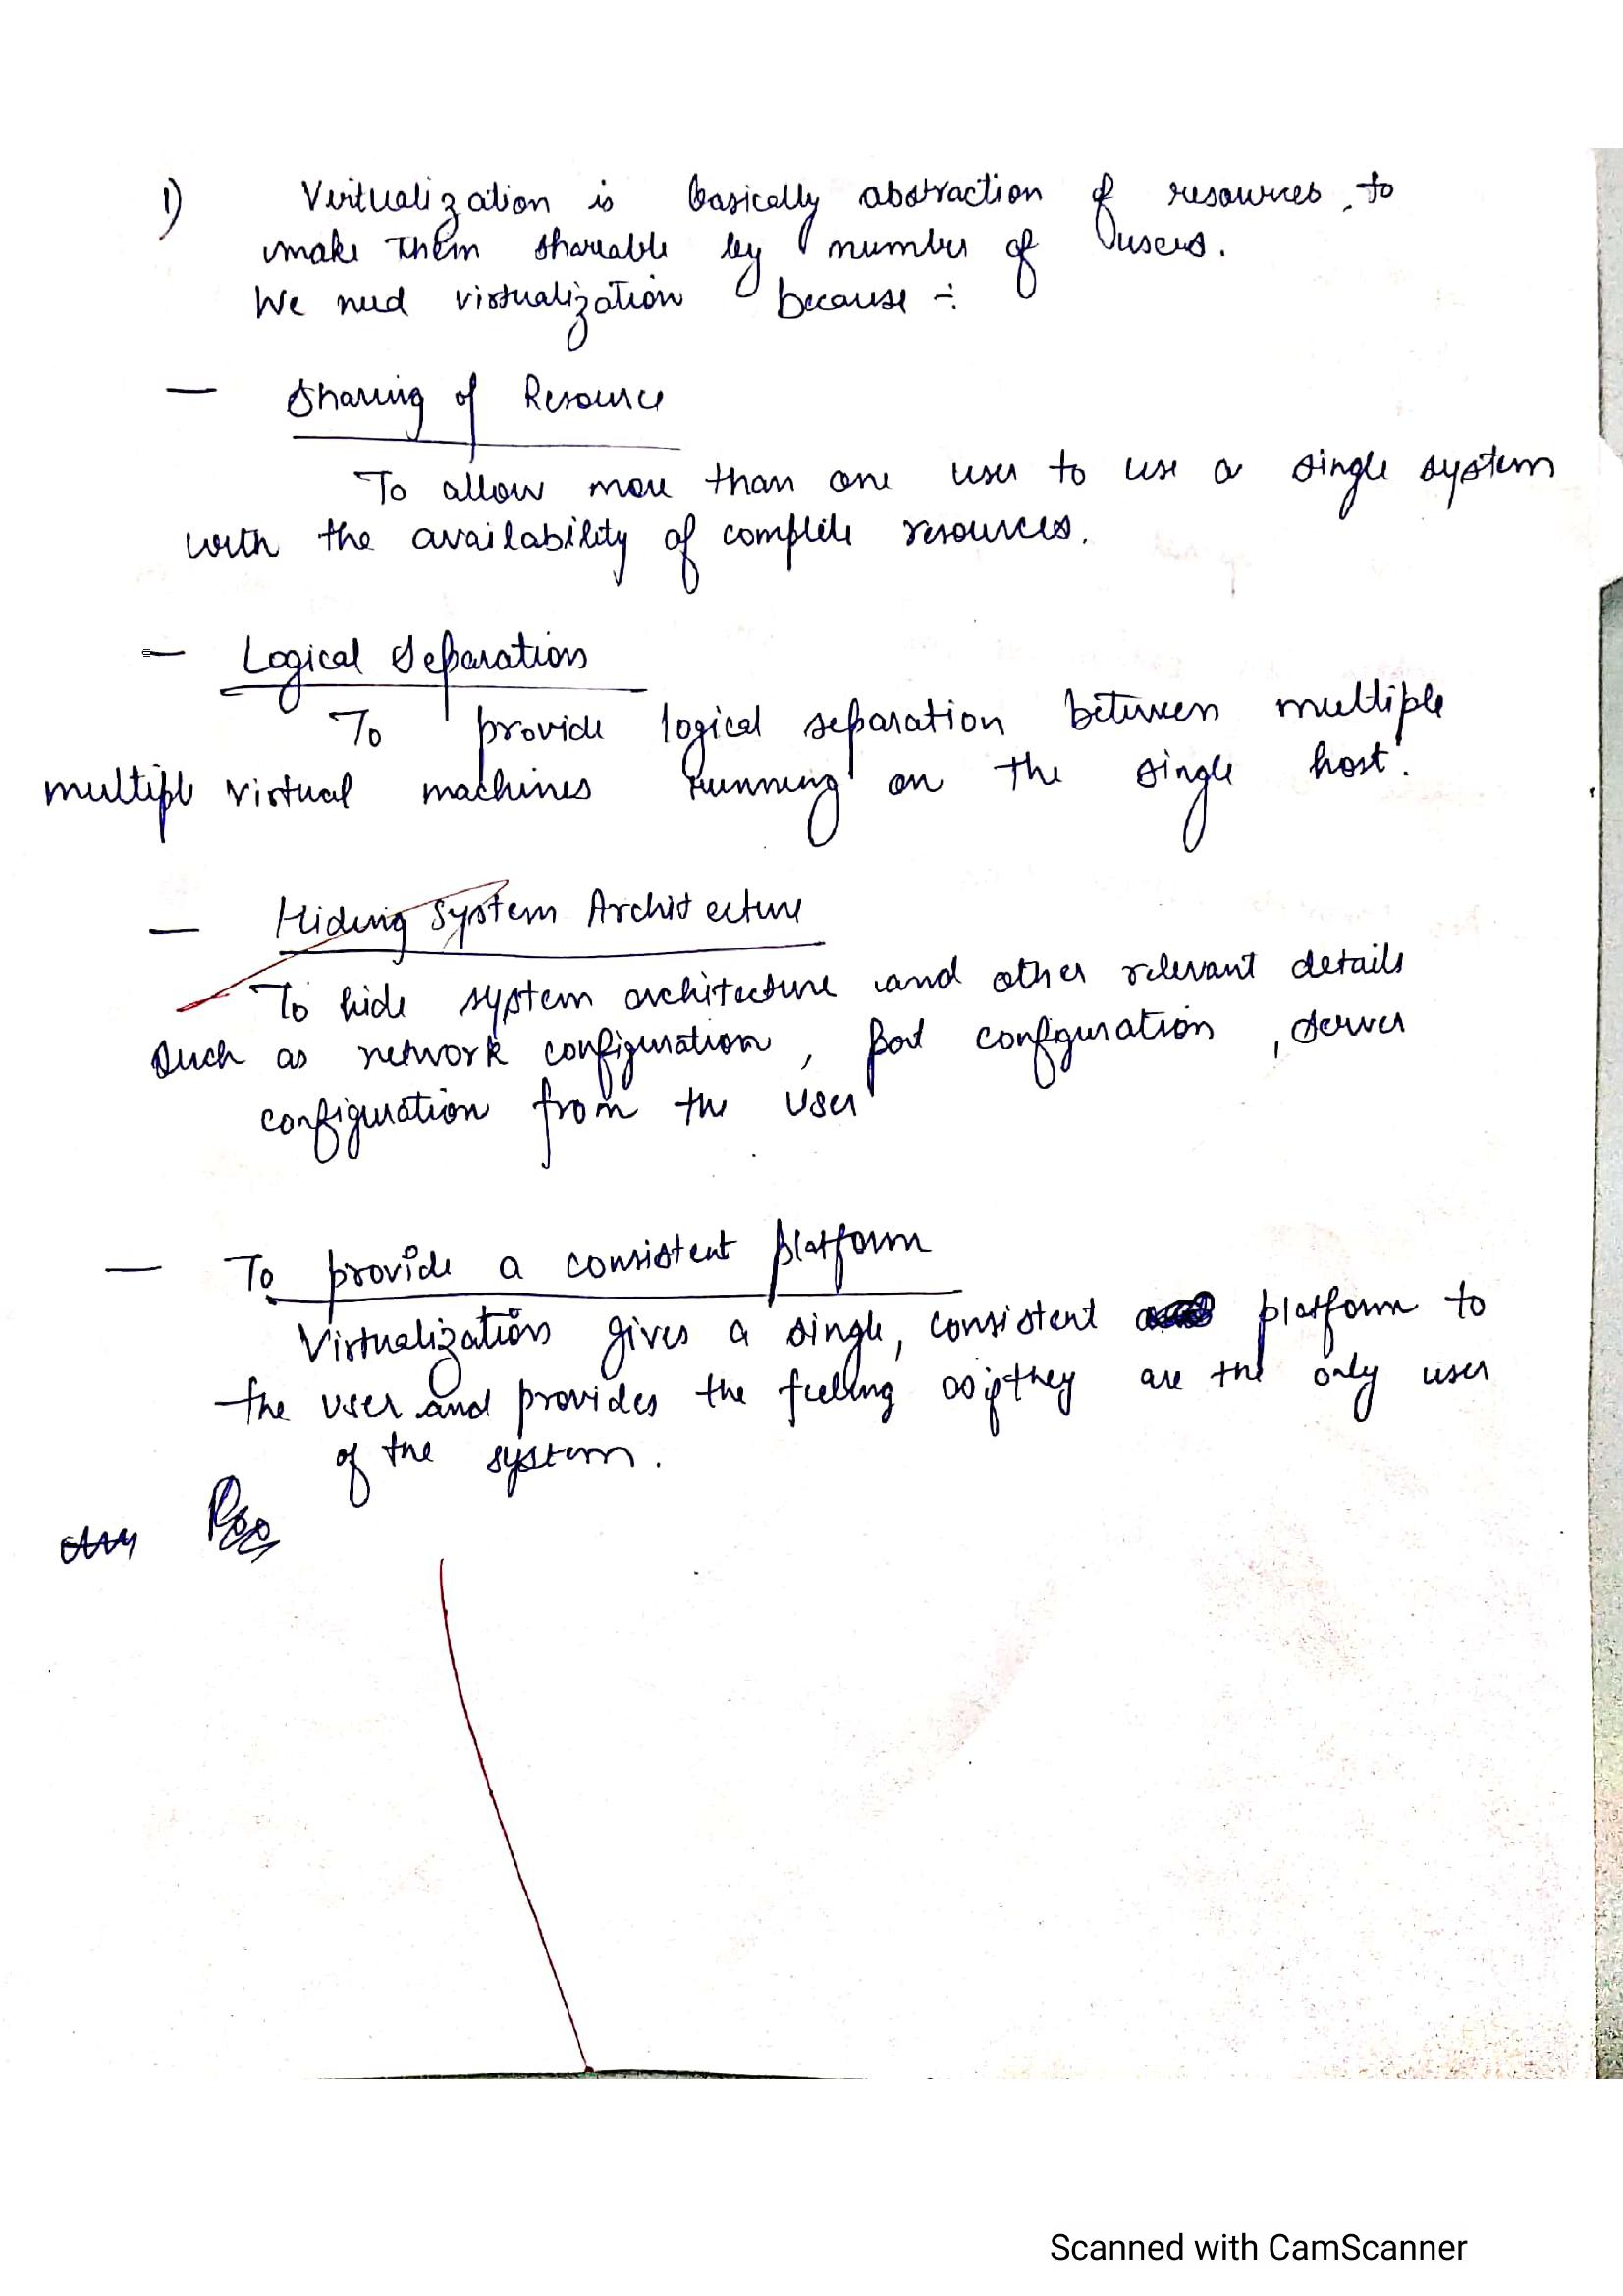 1) Virtualization is basically abstraction of resources, to
make them shareable by number of users.
We need virtualization because ÷
— Sharing of Resource
To allow more than one user to use a single system
with the availability of complete resources.
— Logical Separation
To provide logical separation between multiple
multiple virtual machines running on the single host.
— Hiding System Architecture
To hide system architecture and other relevant details
such as network configuration, port configuration, server
configuration from the user
— To provide a consistent platform
Virtualization gives a single, consistent platform to
the user and provides the feeling as if they are the only user
of the system.
Scanned with CamScanner